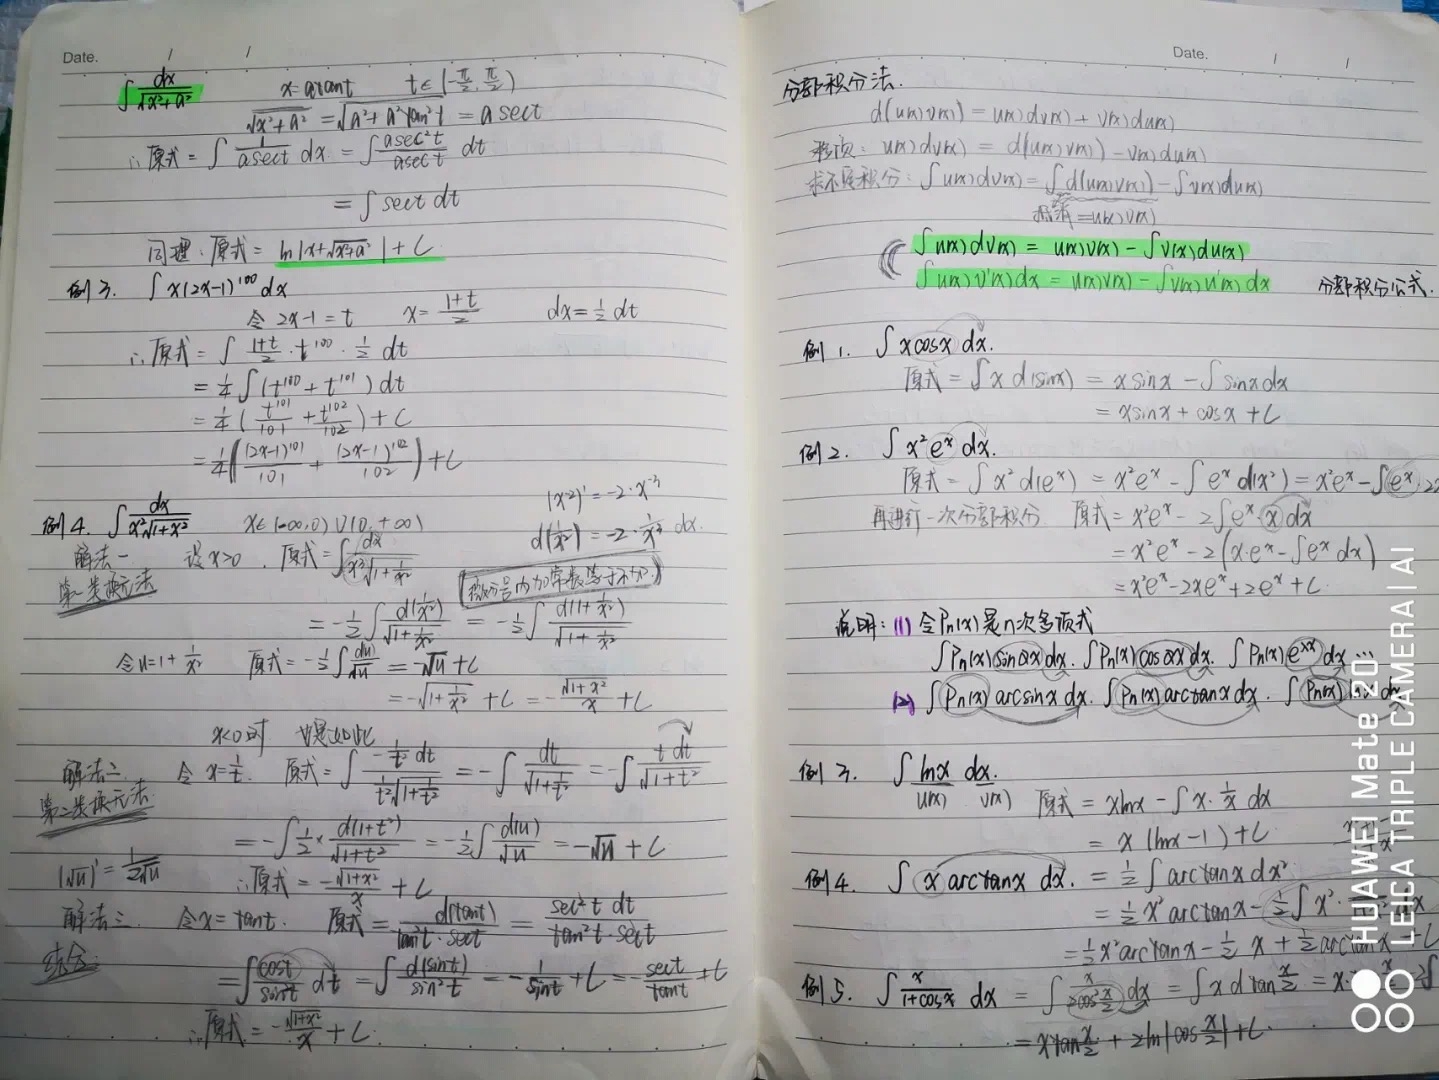 Date. / /
∫ dx/√(x²+a²) x=atant t∈(-π/2, π/2)
√(x²+a²) = √(a²+a²tan²t) = a sect
∴原式 = ∫ 1/(asect) dx = ∫ asec²t/(asect) dt
= ∫ sect dt
同理. 原式 = ln|x+√(x²+a²)| + C
例3. ∫ x(2x-1)¹⁰⁰ dx
令 2x-1=t x= (1+t)/2 dx=½dt
∴原式= ∫ (1+t)/2 · t¹⁰⁰ · ½ dt
= ¼ ∫ (t¹⁰⁰ + t¹⁰¹) dt
= ¼ (t¹⁰¹/101 + t¹⁰²/102) + C
= ¼((2x-1)¹⁰¹/101 + (2x-1)¹⁰²/102) + C
(x⁻²)' = -2·x⁻³
例4. ∫ dx/(x²√(1+x²)) x∈(-∞,0)∪(0,+∞) d(1/x²) = -2·1/x³ dx.
解法一 设x>0. 原式=∫ dx/(x³√(1+1/x²))
第一类换元法 微分号内加常数等于不加
= -½∫ d(1/x²)/√(1+1/x²) = -½∫ d(1+1/x²)/√(1+1/x²)
令u=1+1/x² 原式= -½∫ du/√u = -√u + C
= -√(1+1/x²) + C = -√(1+x²)/x + C
x<0时 也是如此
解法二 令 x=1/t. 原式= ∫ (-1/t² dt)/(1/t²√(1+1/t²)) = -∫ dt/√(1+1/t²) = -∫ t dt/√(1+t²)
第二类换元法
= -∫ ½ × d(1+t²)/√(1+t²) = -½∫ d(u)/√u = -√u + C
(√u)' = 1/(2√u) ∴原式= -√(1+x²)/x + C
解法三 令x=tant. 原式= d(tant)/(tan²t·sect) = sec²t dt/(tan²t·sect)
综合.
= ∫ cost/sin²t dt = ∫ d(sint)/sin²t = -1/sint + C = -sect/tant + C
∴原式 = -√(1+x²)/x + C.
Date. / /
分部积分法.
d(u(x)v(x)) = u(x)dv(x) + v(x)du(x)
移项: u(x)dv(x) = d(u(x)v(x)) - v(x)du(x)
求不定积分: ∫u(x)dv(x) = ∫d(u(x)v(x)) - ∫v(x)du(x)
抵消 = u(x)v(x)
∫u(x)dv(x) = u(x)v(x) - ∫v(x)du(x)
∫u(x)v'(x)dx = u(x)v(x) - ∫v(x)u'(x)dx 分部积分公式.
例1. ∫ xcosx dx.
原式 = ∫x d(sinx) = xsinx - ∫sinxdx
= xsinx + cosx + C
例2. ∫ x²eˣ dx.
原式= ∫x²d(eˣ) = x²eˣ - ∫eˣd(x²) = x²eˣ - ∫eˣ·2x
再进行一次分部积分 原式= x²eˣ - 2∫eˣ·x dx
= x²eˣ - 2(x·eˣ - ∫eˣdx)
= x²eˣ - 2xeˣ + 2eˣ + C.
说明: (1) 令Pn(x)是n次多项式
∫Pn(x)sinαxdx. ∫Pn(x)cosαxdx. ∫Pn(x)e^(αx)dx …
(2) ∫Pn(x)arcsinxdx. ∫Pn(x)arctanxdx. ∫Pn(x) dx
例3. ∫ lnx dx.
u(x) v(x) 原式 = xlnx - ∫x·1/x dx
= x(lnx-1)+C
例4. ∫ xarctanx dx. = ½∫arctanxdx²
= ½x²arctanx - ½∫x²·
= ½x²arctanx - ½x + ½arctanx + C
例5. ∫ x/(1+cosx) dx = ∫ x/(2cos²(x/2)) dx = ∫x d tan(x/2) = x·
= xtan(x/2) + 2ln|cos(x/2)| + C.
HUAWEI Mate 20
LEICA TRIPLE CAMERA | AI